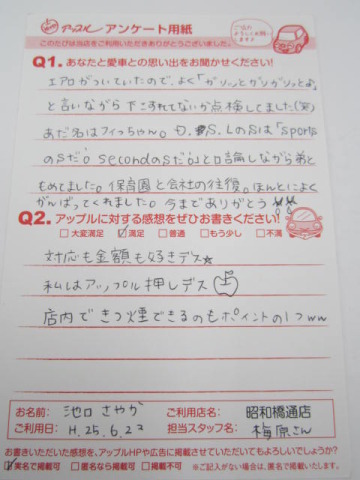 アップル アンケート用紙
このたびは当店をご利用いただきありがとうございました。
Q1. あなたと愛車との思い出をお聞かせください!
エアロがついていたので、よく「ガリッとかガリガリッとか」
と言いながら下こすれてないか点検してました(笑)
あだ名はフィっちゃん。も、S.LのSは「Sports
のSだ!secondのSだ!」と口論しながら弟と
もめてました。保育園と会社の往復。ほんとによく
がんばってくれました。今までありがとう
Q2. アップルに対する感想をぜひお書きください!
□大変満足 ☑満足 □普通 □もう少し □不満
対応も金額も好きデス★
私はアップル押しデス
店内できつ煙できるのもポイントの1つww
お名前: 池口 さやか ご利用店名: 昭和橋通店
ご利用日: H.25.6.23 担当スタッフ名: 梅原さん
お書きいただいた感想を、アップルHPや広告に掲載させていただいてもよろしいでしょうか?
☑実名で掲載可 □匿名なら掲載可 □掲載不可 ※ご記入がない場合は、匿名で掲載いたします。